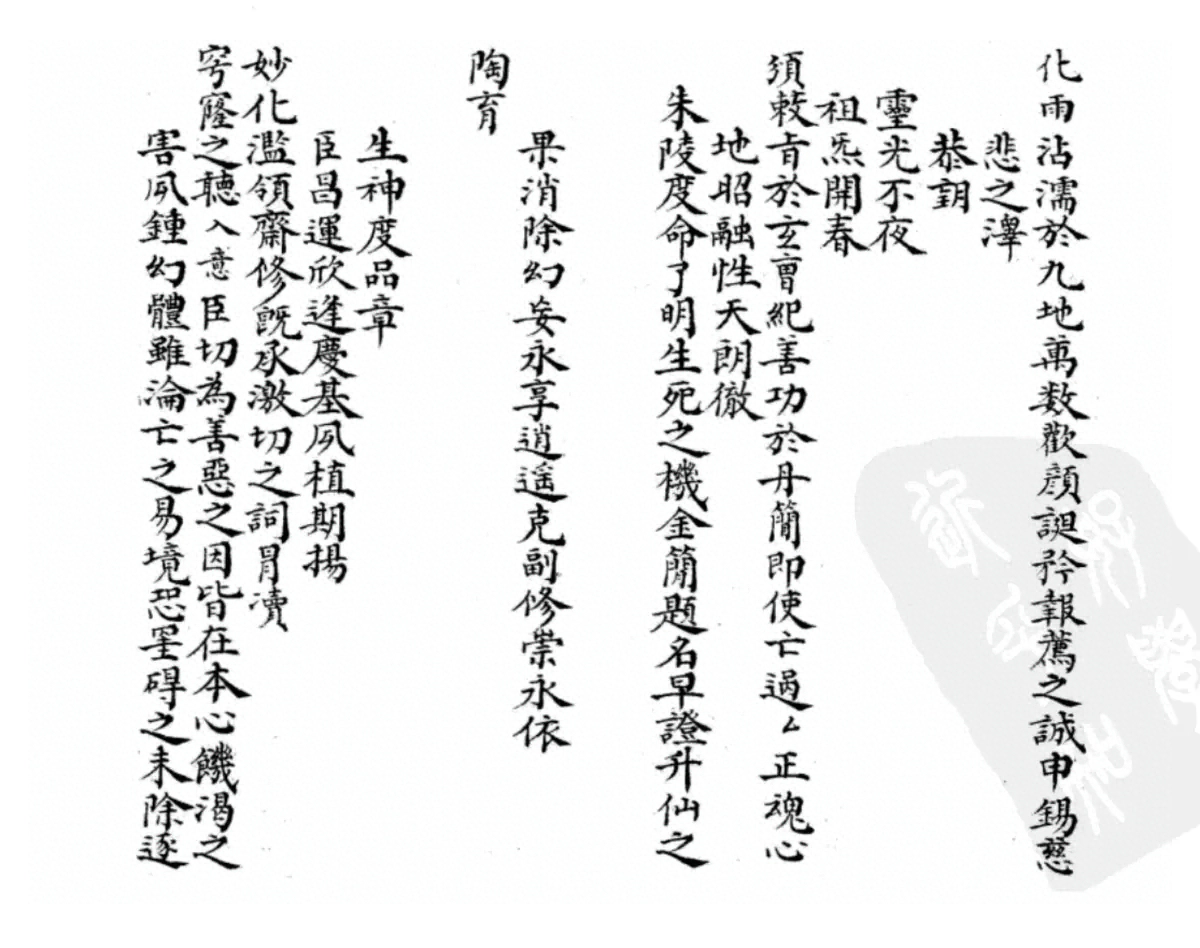 化雨沾濡於九地萬数歡顔誕矜報薦之誠申錫慈
悲之澤
恭
靈光不夜
祖炁開春
須敕旨於玄曺紀善功於丹簡即使亡過厶正魂心
地昭融性天朗徹
朱陵度命了明生死之機金簡題名早證升仙之
果消除幻妄永享逍遥克副修崇永依
陶育
生神度品章
臣昌運欣逢慶基夙植期揚
妙化濫領齋修既承激切之詞冐瀆
穹窿之聽入意臣切為善惡之因皆在本心饑渴之
害夙鍾幻體雖淪亡之易境恐罣碍之未除逐